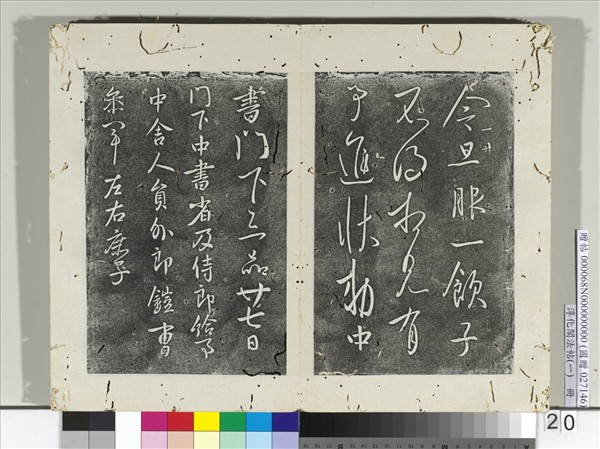 今旦服一飲子
不得相見有
事進狀勅中
書門下三品廿七日
門下中書省及侍郎給事
中舍人員外郎鎧曹
參軍左右庶子
贈帖 000068N000000000 (國贈 027146)
淳化閣法帖(一) 冊
20